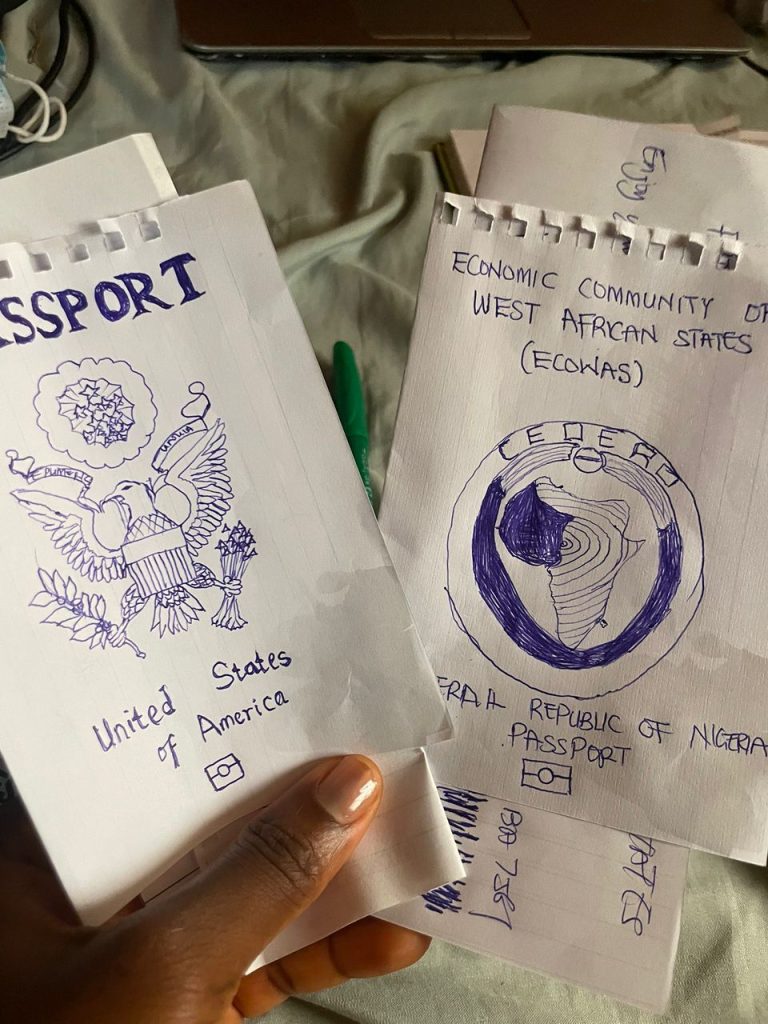 SSPORT
United States
of America
Enjoy
ECONOMIC COMMUNITY OF
WEST AFRICAN STATES
(ECOWAS)
CEDEAO
REPUBLIC OF NIGERIA
PASSPORT